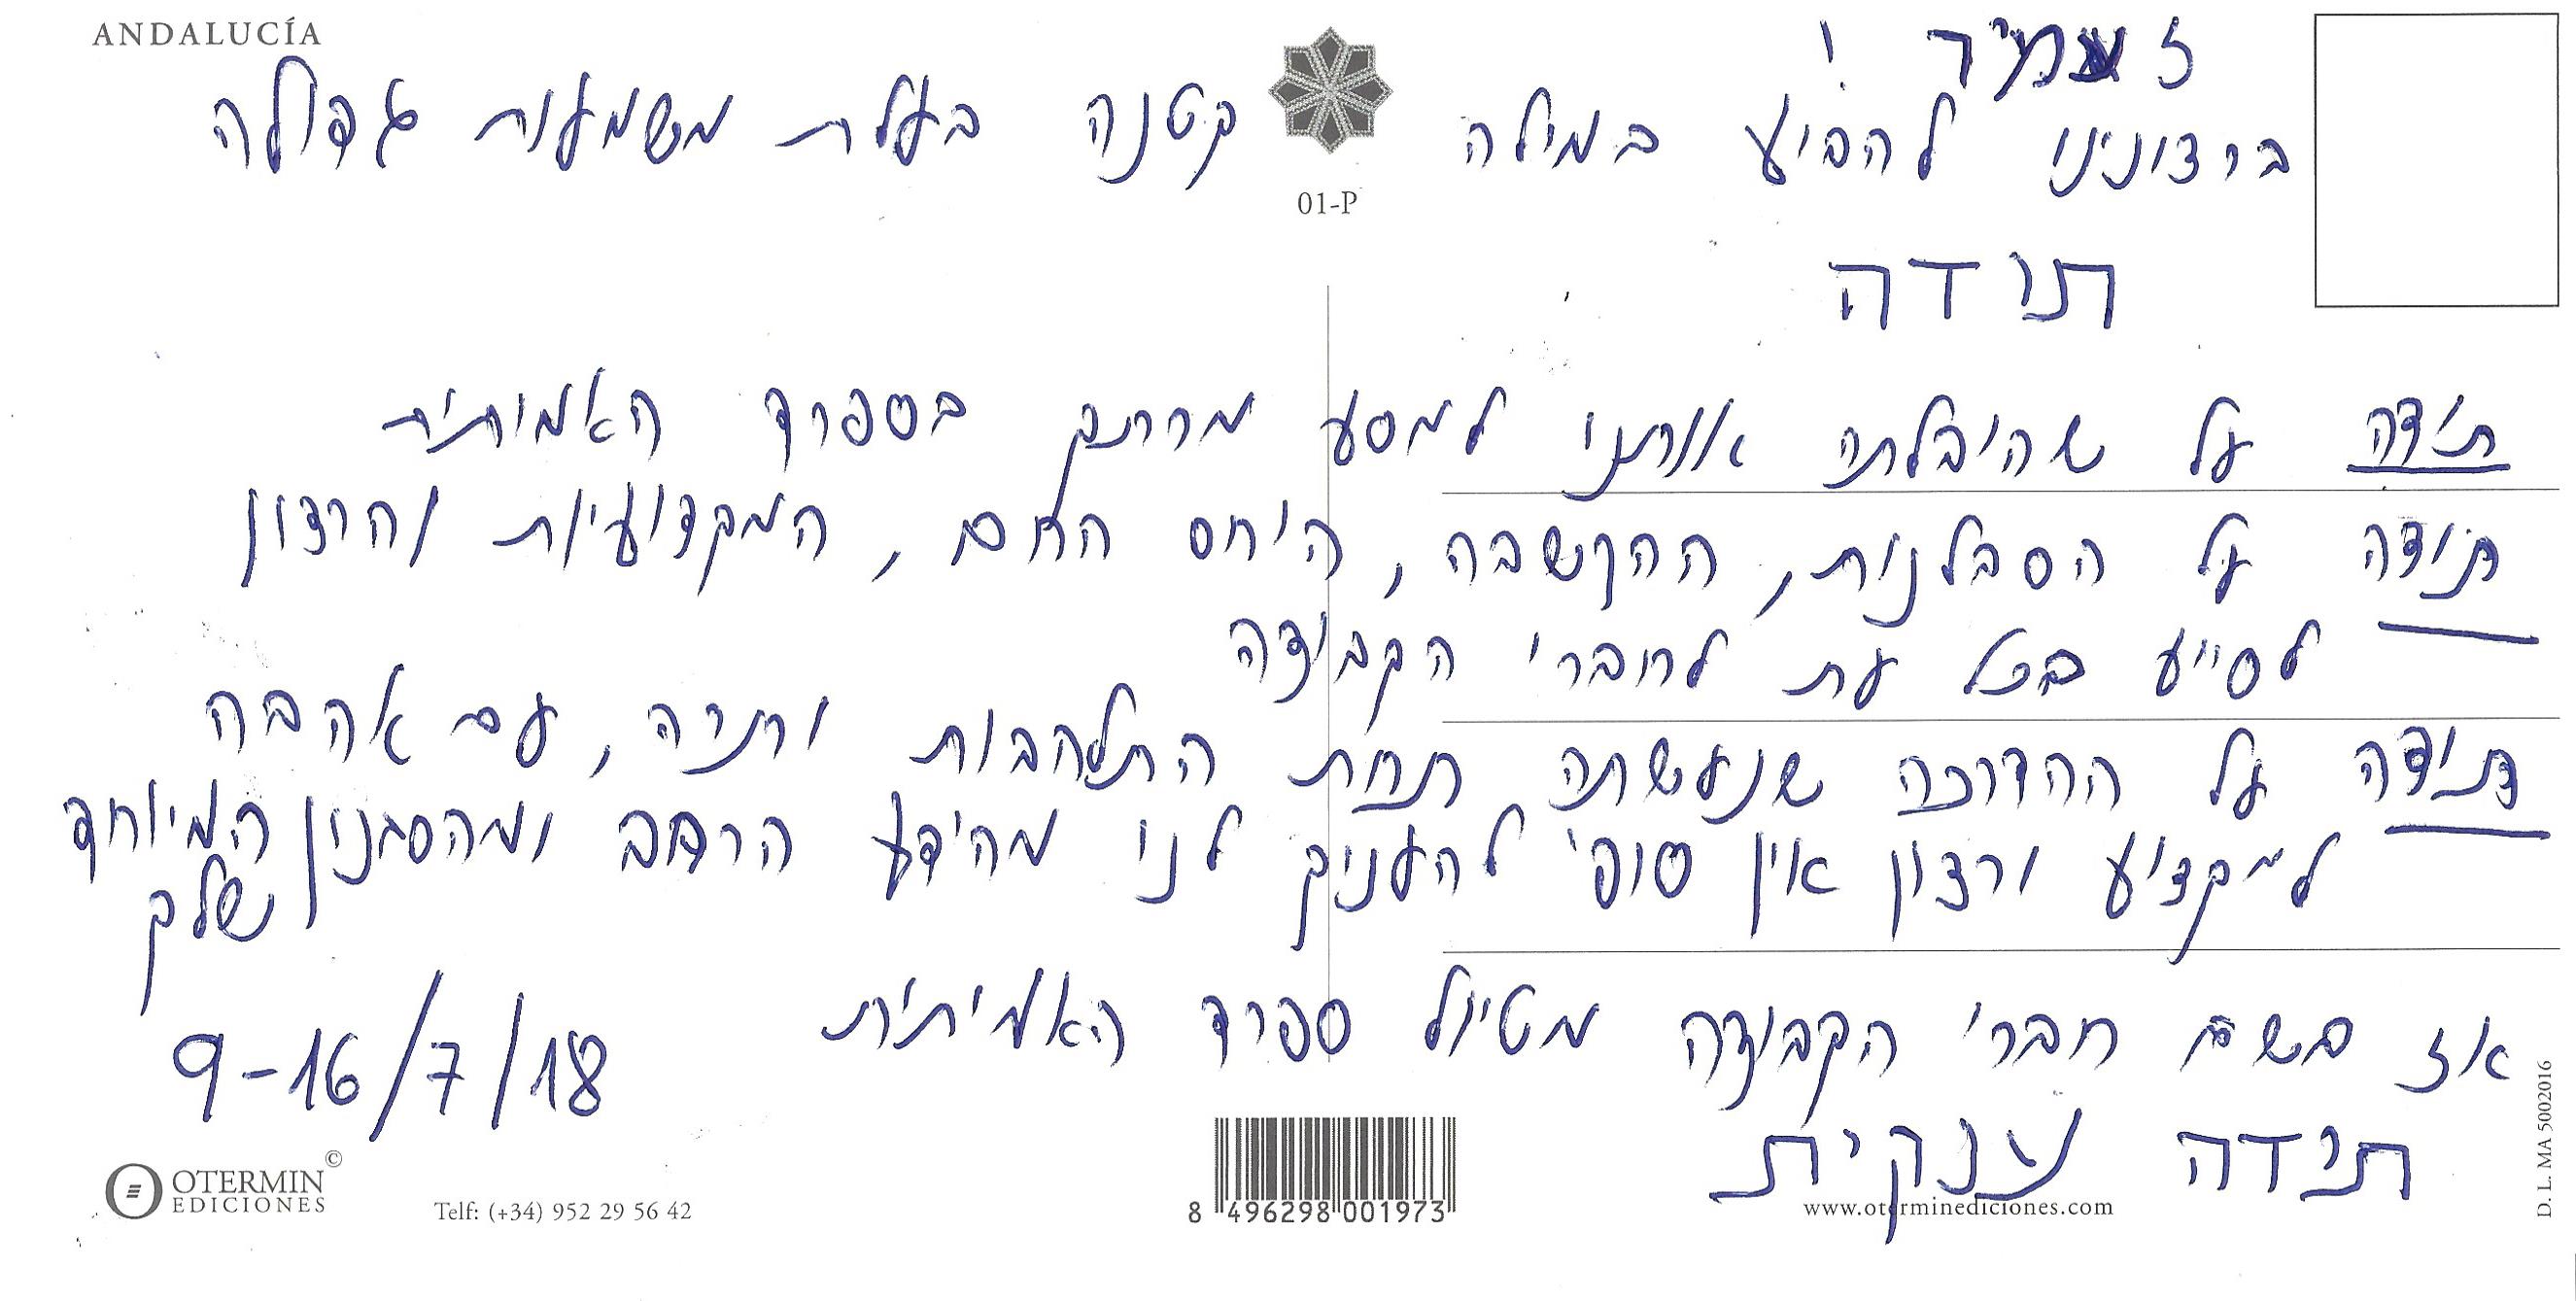 ANDALUCÍA
ברצונינו להביע במילה קטנה בעלת משמעות גדולה
01-P
תודה
תודה על שהובלתה אותנו למסע מרתק בספרד האמיתית
תודה על הסבלנות, ההקשבה, היחס החם, המקצועיות והרצון
לסייע בכל עת לחברי הקבוצה
תודה על ההדרכה שנעשתה תחת התלהבות ותיה, עם אהבה
למקצוע ורצון אין סופי להעניק לנו מהידע הרחב ומהסגנון המיוחד
שלך
אז בשם חברי הקבוצה מטיול ספרד האמיתית
9-16/7/18
תודה ענקית
OTERMIN©
EDICIONES
Telf: (+34) 952 29 56 42
8 496298 001973
www.oterminediciones.com
D. L. MA 5002016